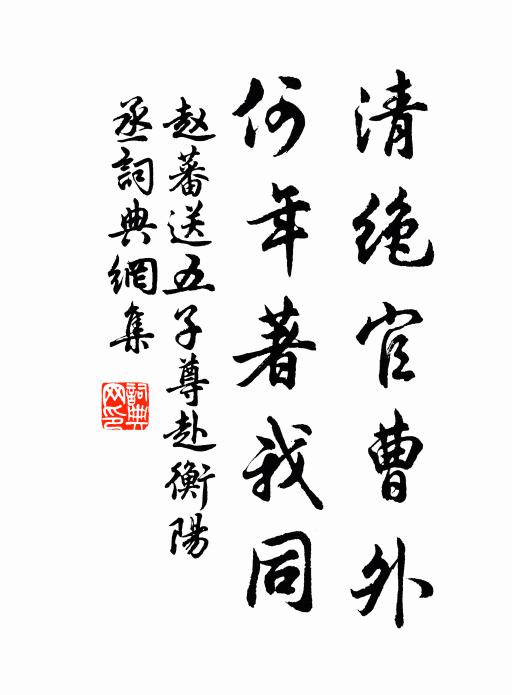 清绝官曹外
何年著我同
赵蕃送五子尊赴衡陽
丞詞典網集
詞典网印